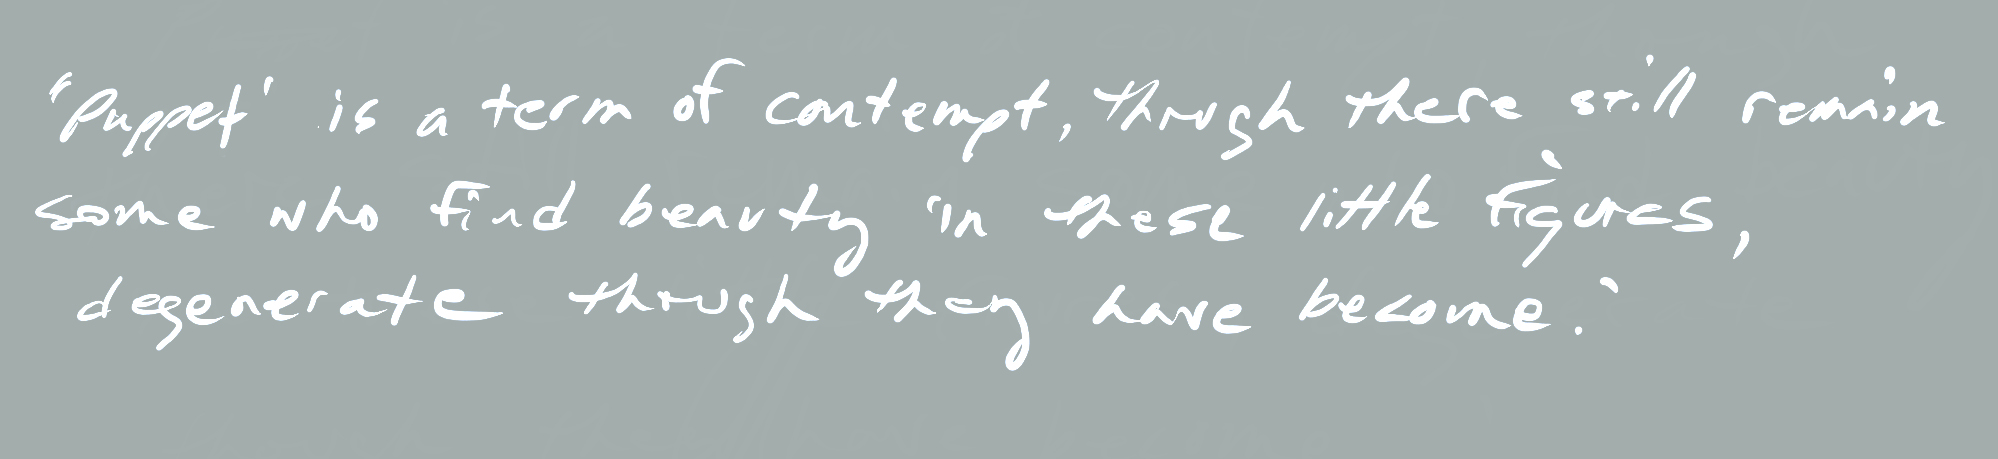 "Puppet' is a term of contempt, though there still remain
some who find beauty in these little figures,
degenerate though they have become.'